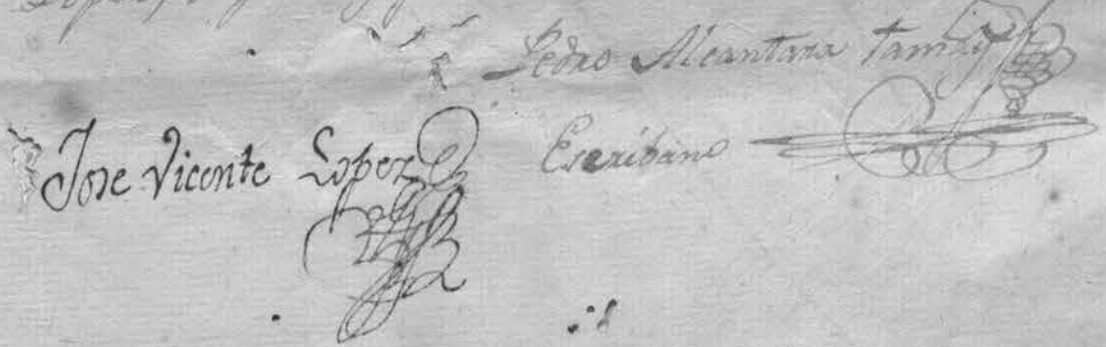 Pedro Alcantara Tamayo
Jose Vicente Lopez Escribano